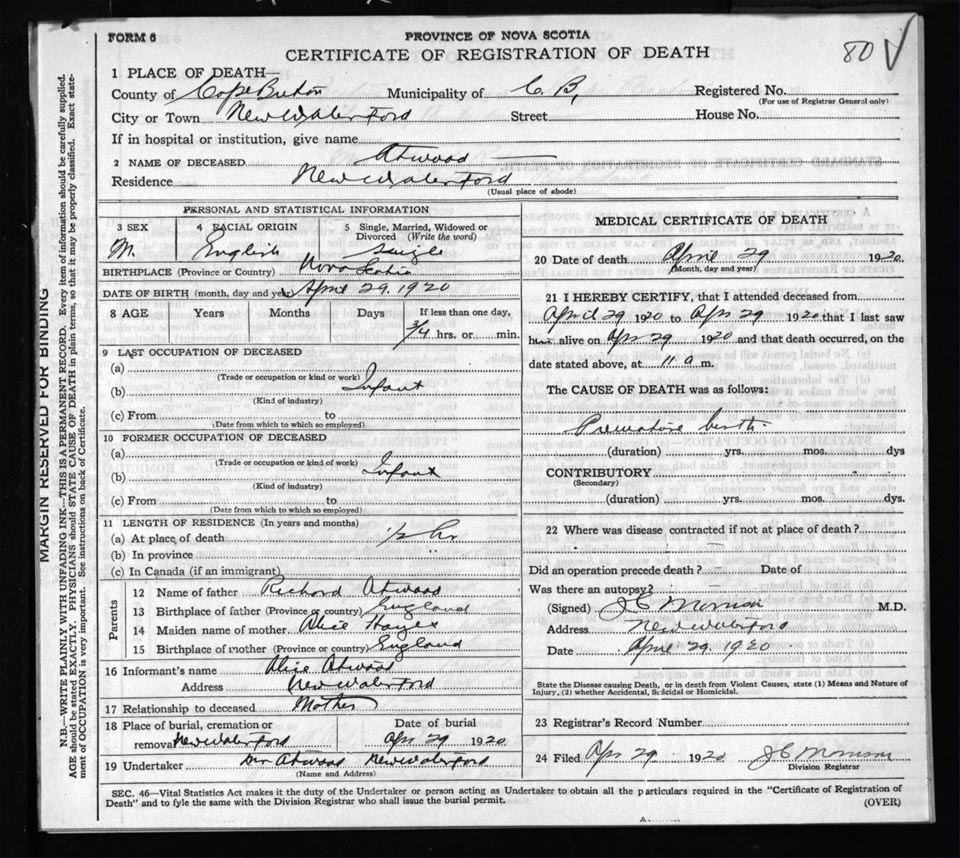 FORM 6
PROVINCE OF NOVA SCOTIA
CERTIFICATE OF REGISTRATION OF DEATH
80 V
1 PLACE OF DEATH—
County of Cape Breton Municipality of C. B. Registered No.
(For use of Registrar General only)
City or Town New Waterford Street House No.
If in hospital or institution, give name
2 NAME OF DECEASED Atwood —
Residence New Waterford
(Usual place of abode)
PERSONAL AND STATISTICAL INFORMATION
3 SEX 4 RACIAL ORIGIN 5 Single, Married, Widowed or Divorced (Write the word)
M. English Single
BIRTHPLACE (Province or Country) Nova Scotia
DATE OF BIRTH (month, day and year) April 29. 1920
8 AGE Years Months Days If less than one day,
3/4 hrs. or min.
9 LAST OCCUPATION OF DECEASED
(a)
(Trade or occupation or kind or work)
(b) Infant
(Kind of industry)
(c) From to
(Date from which to which so employed)
10 FORMER OCCUPATION OF DECEASED
(a)
(Trade or occupation or kind of work)
(b) Infant
(Kind of industry)
(c) From to
(Date from which to which so employed)
11 LENGTH OF RESIDENCE (In years and months)
(a) At place of death 1/2 hr
(b) In province
(c) In Canada (if an immigrant)
Parents
12 Name of father Richard Atwood
13 Birthplace of father (Province or country) England
14 Maiden name of mother Alice Hayes
15 Birthplace of mother (Province or country) England
16 Informant's name Alice Atwood
Address New Waterford
17 Relationship to deceased Mother
18 Place of burial, cremation or Date of burial
removal New Waterford Apr 29 1920
19 Undertaker Atwood New Waterford
(Name and Address)
MEDICAL CERTIFICATE OF DEATH
20 Date of death April 29 1920.
(Month, day and year)
21 I HEREBY CERTIFY, that I attended deceased from
April 29 1920 to Apr 29 1920 that I last saw
him alive on Apr 29 1920 and that death occurred, on the
date stated above, at 11 a m.
The CAUSE OF DEATH was as follows:
Premature birth.
(duration) yrs. mos. dys
CONTRIBUTORY
(Secondary)
(duration) yrs. mos. dys.
22 Where was disease contracted if not at place of death?
—
Did an operation precede death? — Date of
Was there an autopsy? —
(Signed) J C Morrison M.D.
Address New Waterford
Date April 29. 1920
State the Disease causing Death, or in death from Violent Causes, state (1) Means and Nature of
Injury, (2) whether Accidental, Suicidal or Homicidal.
23 Registrar's Record Number
24 Filed Apr 29 1920 J C Morrison
Division Registrar
SEC. 46—Vital Statistics Act makes it the duty of the Undertaker or person acting as Undertaker to obtain all the particulars required in the "Certificate of Registration of
Death" and to fyle the same with the Division Registrar who shall issue the burial permit.
(OVER)
MARGIN RESERVED FOR BINDING
N.B.—WRITE PLAINLY WITH UNFADING INK—THIS IS A PERMANENT RECORD. Every item of information should be carefully supplied.
AGE should be stated EXACTLY. PHYSICIANS should STATE CAUSE OF DEATH in plain terms, so that it may be properly classified. Exact state-
ment of OCCUPATION is very important. See instructions on back of Certificate.